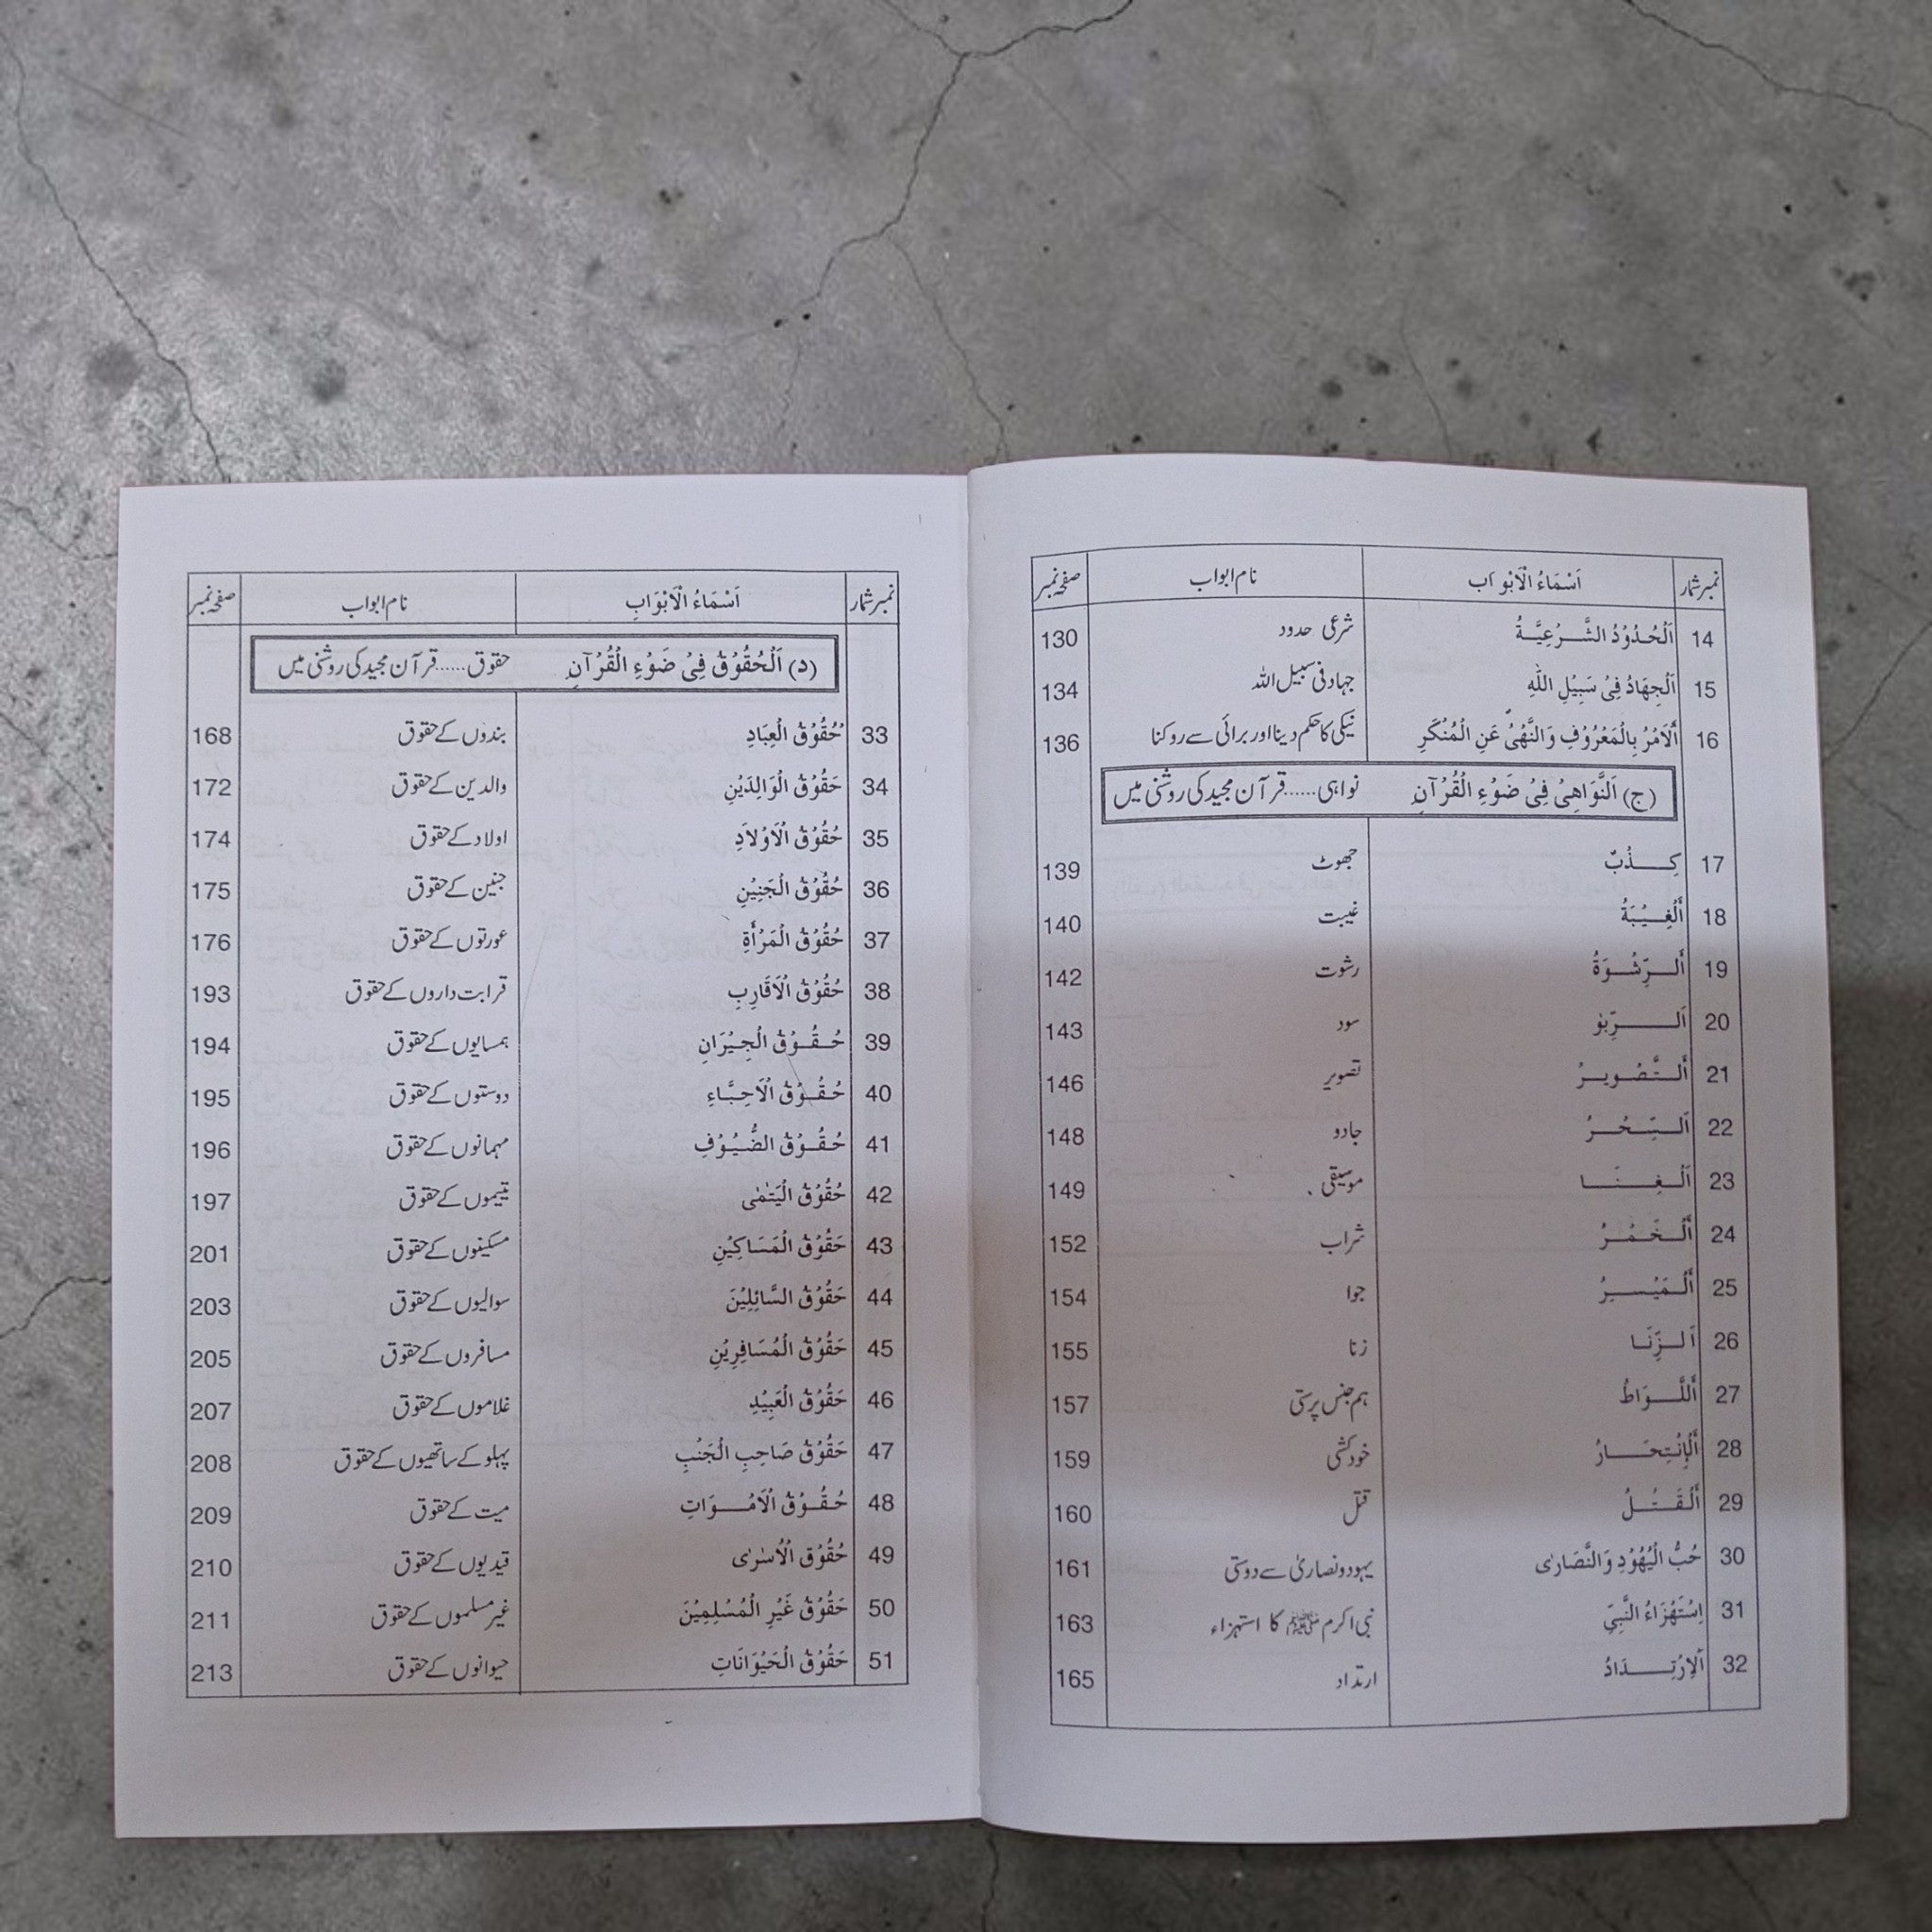 نمبر شمار اَسْمَاءُ الْاَبْوَابِ نام ابواب صفحہ نمبر
14 اَلْحُدُوْدُ الشَّرْعِيَّةُ شرعی حدود 130
15 اَلْجِهَادُ فِىْ سَبِيْلِ اللّٰهِ جہاد فی سبیل اللہ 134
16 أَلَامْرُ بِالْمَعْرُوْفِ وَالنَّهْىُ عَنِ الْمُنْكَرِ نیکی کا حکم دینا اور برائی سے روکنا 136
(ج) اَلنَّوَاهِىْ فِىْ ضَوْءِ الْقُرْآنِ نواہی......قرآن مجید کی روشنی میں
17 كِذْبٌ جھوٹ 139
18 أَلْغِيْبَةُ غیبت 140
19 أَلرِّشْوَةُ رشوت 142
20 اَلرِّبٰو سود 143
21 أَلتَّصْوِيرُ تصویر 146
22 اَلسِّحْرُ جادو 148
23 اَلْغِنَا موسیقی 149
24 أَلْخَمْرُ شراب 152
25 أَلْمَيْسِرُ جوا 154
26 اَلزِّنَا زنا 155
27 أَللَّوَاطُ ہم جنس پرستی 157
28 أَلْإِنْتِحَارُ خودکشی 159
29 أَلْقَتْلُ قتل 160
30 حُبُّ الْيَهُوْدِ وَالنَّصَارٰى یہود و نصاریٰ سے دوستی 161
31 اِسْتِهْزَاءُ النَّبِيِّ نبی اکرم ﷺ کا استہزاء 163
32 اَلْاِرْتِدَادُ ارتداد 165
نمبر شمار اَسْمَاءُ الْاَبْوَابِ نام ابواب صفحہ نمبر
(د) اَلْحُقُوْقُ فِىْ ضَوْءِ الْقُرْآنِ حقوق......قرآن مجید کی روشنی میں
33 حُقُوْقُ الْعِبَادِ بندوں کے حقوق 168
34 حَقُوْقُ الْوَالِدَيْنِ والدین کے حقوق 172
35 حُقُوْقُ الْاَوْلَادِ اولاد کے حقوق 174
36 حُقُوْقُ الْجَنِيْنِ جنین کے حقوق 175
37 حُقُوْقُ الْمَرْأَةِ عورتوں کے حقوق 176
38 حُقُوْقُ الْاَقَارِبِ قرابت داروں کے حقوق 193
39 حُقُوْقُ الْجِيْرَانِ ہمسایوں کے حقوق 194
40 حُقُوْقُ الْاَحِبَّاءِ دوستوں کے حقوق 195
41 حُقُوْقُ الضُّيُوْفِ مہمانوں کے حقوق 196
42 حُقُوْقُ الْيَتٰمٰى یتیموں کے حقوق 197
43 حَقُوْقُ الْمَسَاكِيْنِ مسکینوں کے حقوق 201
44 حَقُوْقُ السَّائِلِيْنَ سوالیوں کے حقوق 203
45 حَقُوْقُ الْمُسَافِرِيْنِ مسافروں کے حقوق 205
46 حَقُوْقُ الْعَبِيْدِ غلاموں کے حقوق 207
47 حَقُوْقُ صَاحِبِ الْجَنْبِ پہلو کے ساتھیوں کے حقوق 208
48 حُقُوْقُ الْاَمْوَاتِ میت کے حقوق 209
49 حُقُوْقُ الْاُسْرٰى قیدیوں کے حقوق 210
50 حَقُوْقُ غَيْرِ الْمُسْلِمِيْنَ غیر مسلموں کے حقوق 211
51 حَقُوْقُ الْحَيْوَانَاتِ حیوانوں کے حقوق 213